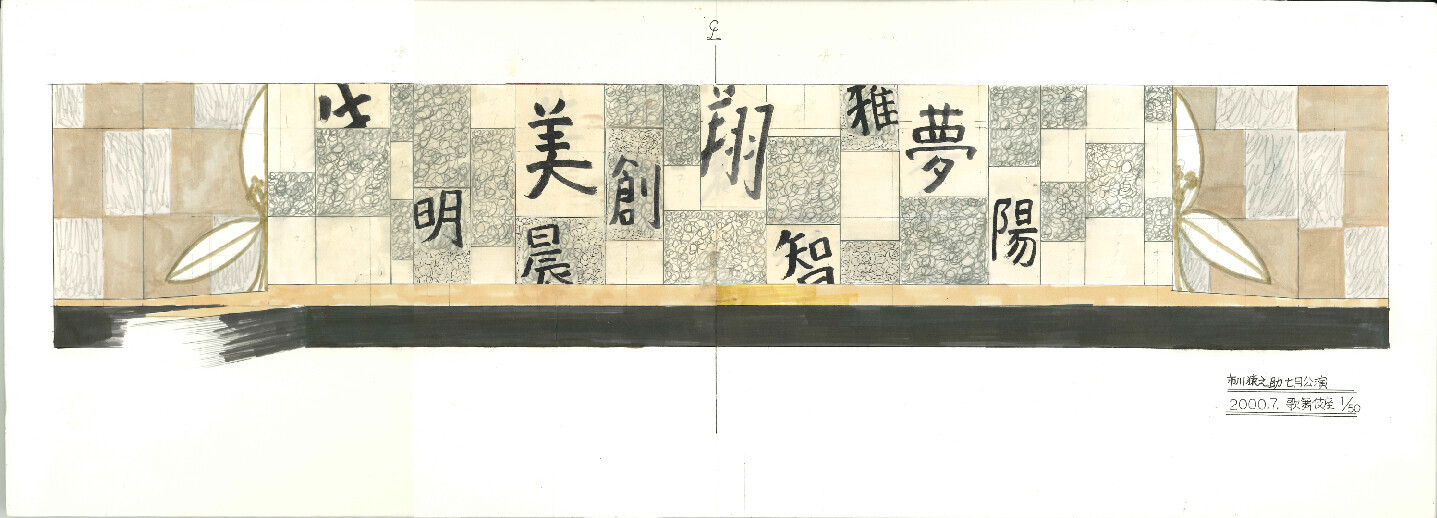 美
翔
雅
夢
明
創
陽
晨
智
市川猿之助七月公演
2000.7. 歌舞伎座 1/50